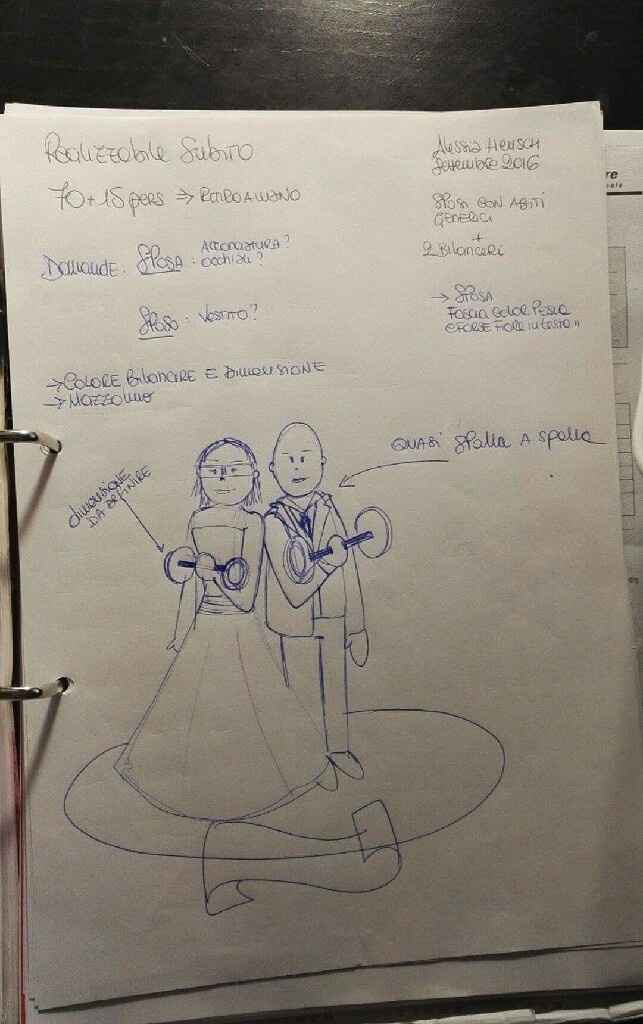 Realizzabile Subito
70+15 pers ⇒
Domande: Sposa: Acconciatura?
Occhiali?
Sposo: Vestito?
→ Colore Bilanciere e Dimensione
→ Mazzolino
Alessia
Settembre 2016
Sposi con abiti
generici
+
2 Bilancieri
→ Sposa
Fascia color Pesca
e forse Fiore in testa
dimensione
da definire
quasi spalla a spalla
re